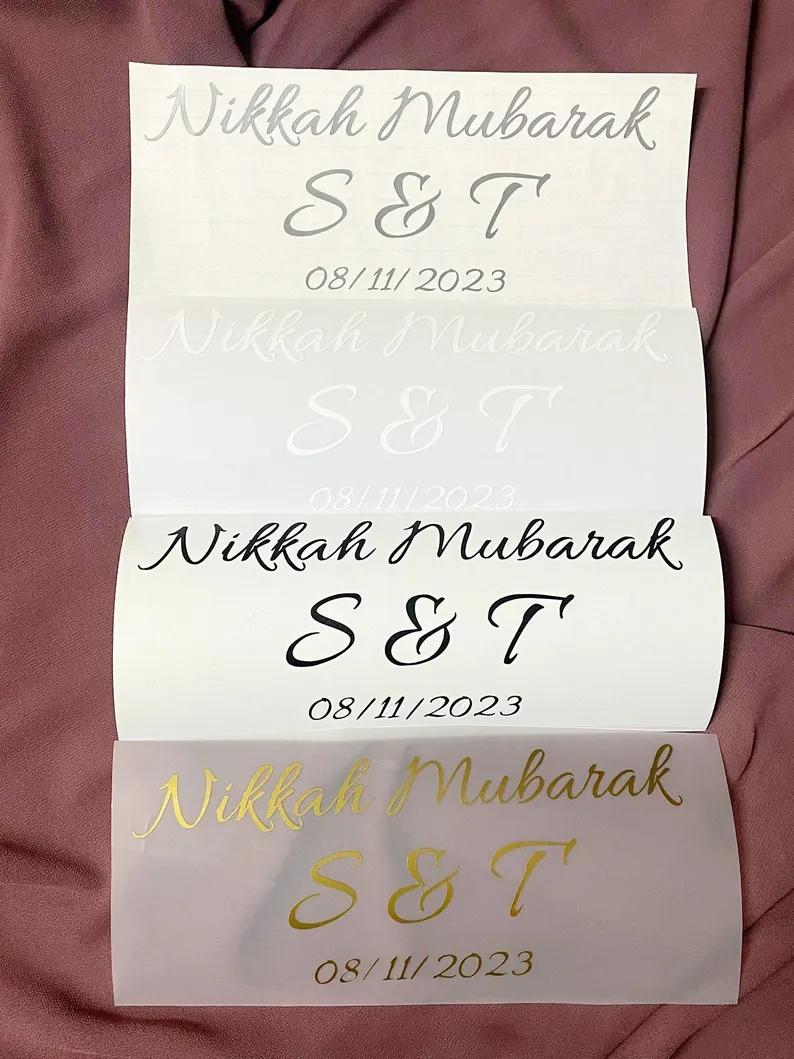 Nikkah Mubarak
S & T
08/11/2023
Nikkah Mubarak
S & T
08/11/2023
Nikkah Mubarak
S & T
08/11/2023
Nikkah Mubarak
S & T
08/11/2023